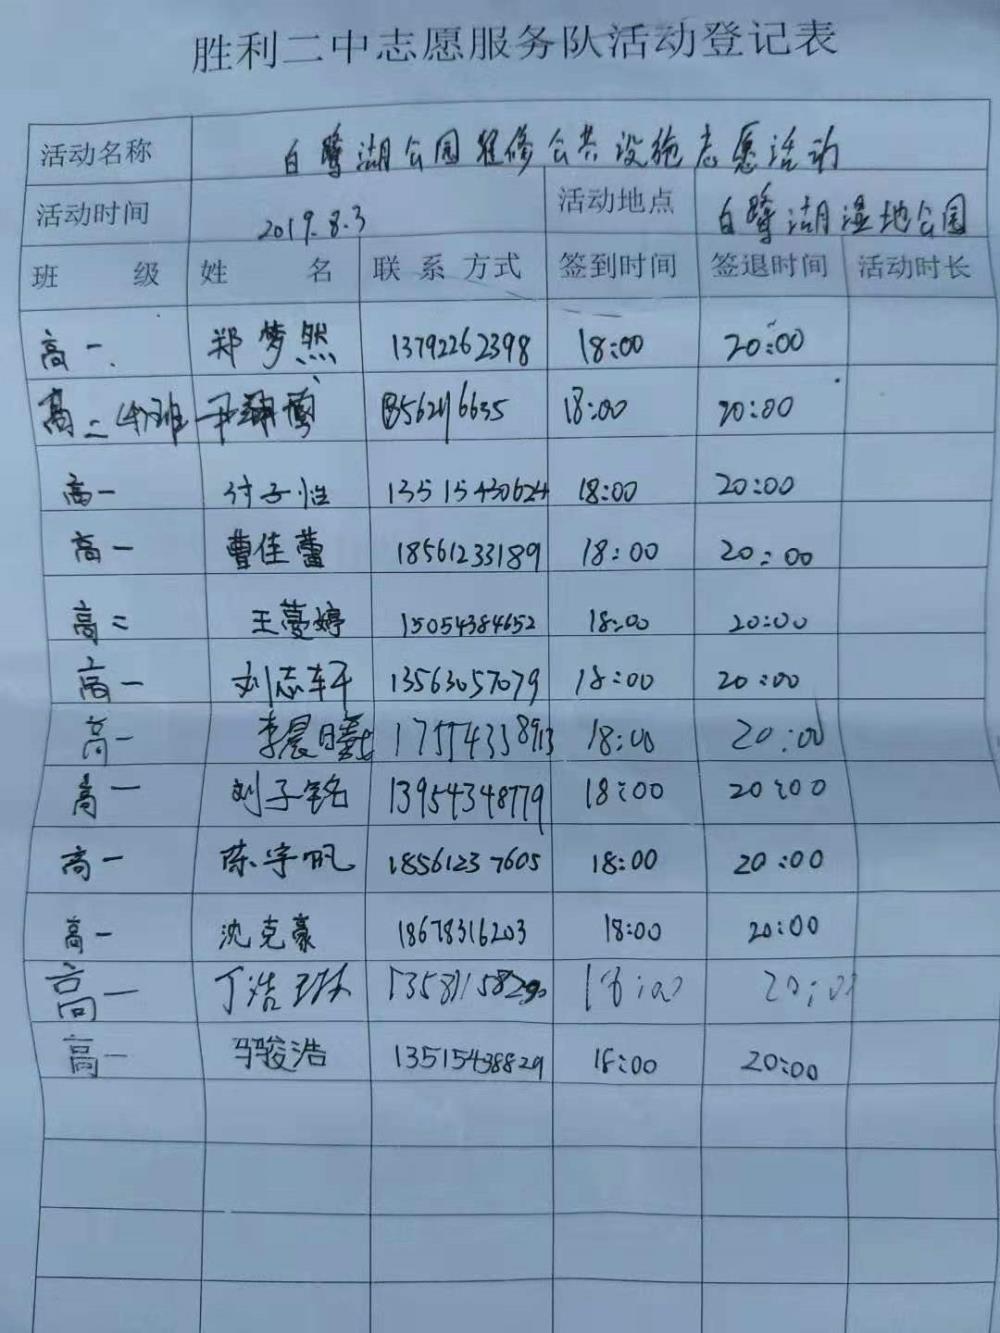 胜利二中志愿服务队活动登记表
活动名称 白鹭湖公园维修公共设施志愿活动
活动时间 2019.8.3 活动地点 白鹭湖湿地公园
班 级 姓 名 联系方式 签到时间 签退时间 活动时长
高一 郑梦然 13792262398 18:00 20:00
高二 18:00 20:00
高一 付子恒 13515430624 18:00 20:00
高一 曹佳蕾 18561233189 18:00 20:00
高二 王蔓婷 15054384652 18:00 20:00
高一 刘志轩 13563057079 18:00 20:00
高一 李晨曦 18:00 20:00
高一 刘子铭 13954348779 18:00 20:00
高一 陈宇帆 18561237605 18:00 20:00
高一 沈克豪 18678316203 18:00 20:00
高一 丁浩 18:00 20:00
高一 马骏浩 13515438829 18:00 20:00